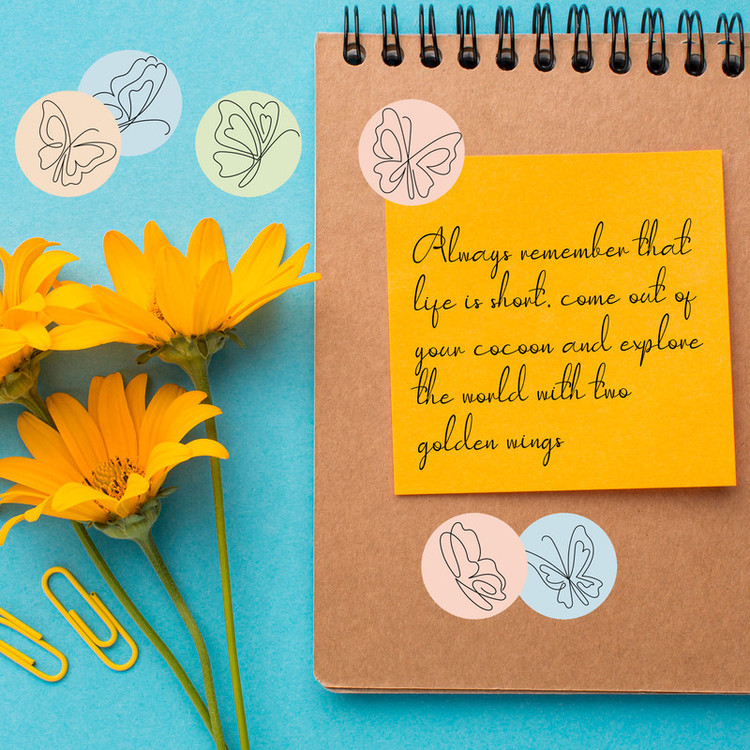 Always remember that
life is short. come out of
your cocoon and explore
the world with two
golden wings